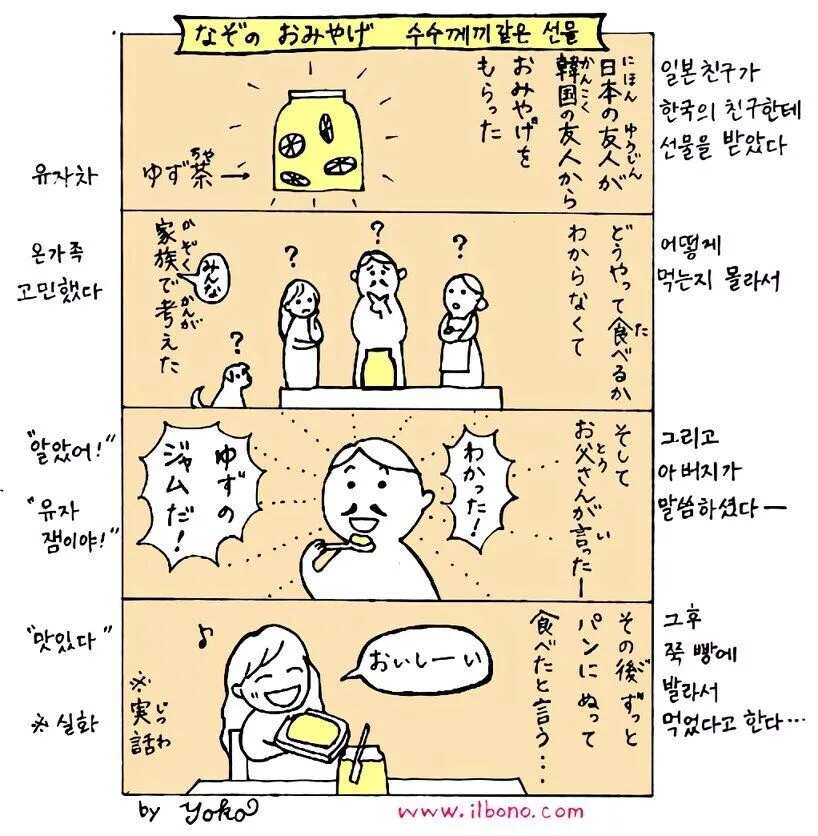 なぞの おみやげ 수수께끼같은 선물
日本の友人が
にほん ゆうじん
韓国の友人から
かんこく
おみやげを
もらった
ゆず茶→
ちゃ
일본친구가
한국의 친구한테
선물을 받았다
유자차
どうやって食べるか
た
わからなくて
?
?
?
?
みんな
家族で考えた
かぞく かんが
어떻게
먹는지 몰라서
온가족
고민했다
そして
お父さんが言ったー
とう い
わかった!
ゆずの
ジャムだ!
그리고
아버지가
말씀하셨다ー
"알았어!"
"유자
잼이야!"
その後ずっと
ご
パンにぬって
食べたと言う・・・
おいしーい
♪
※実話
じつわ
그후
쭉 빵에
발라서
먹었다고 한다…
"맛있다"
※실화
by Yoko
www.ilbono.com